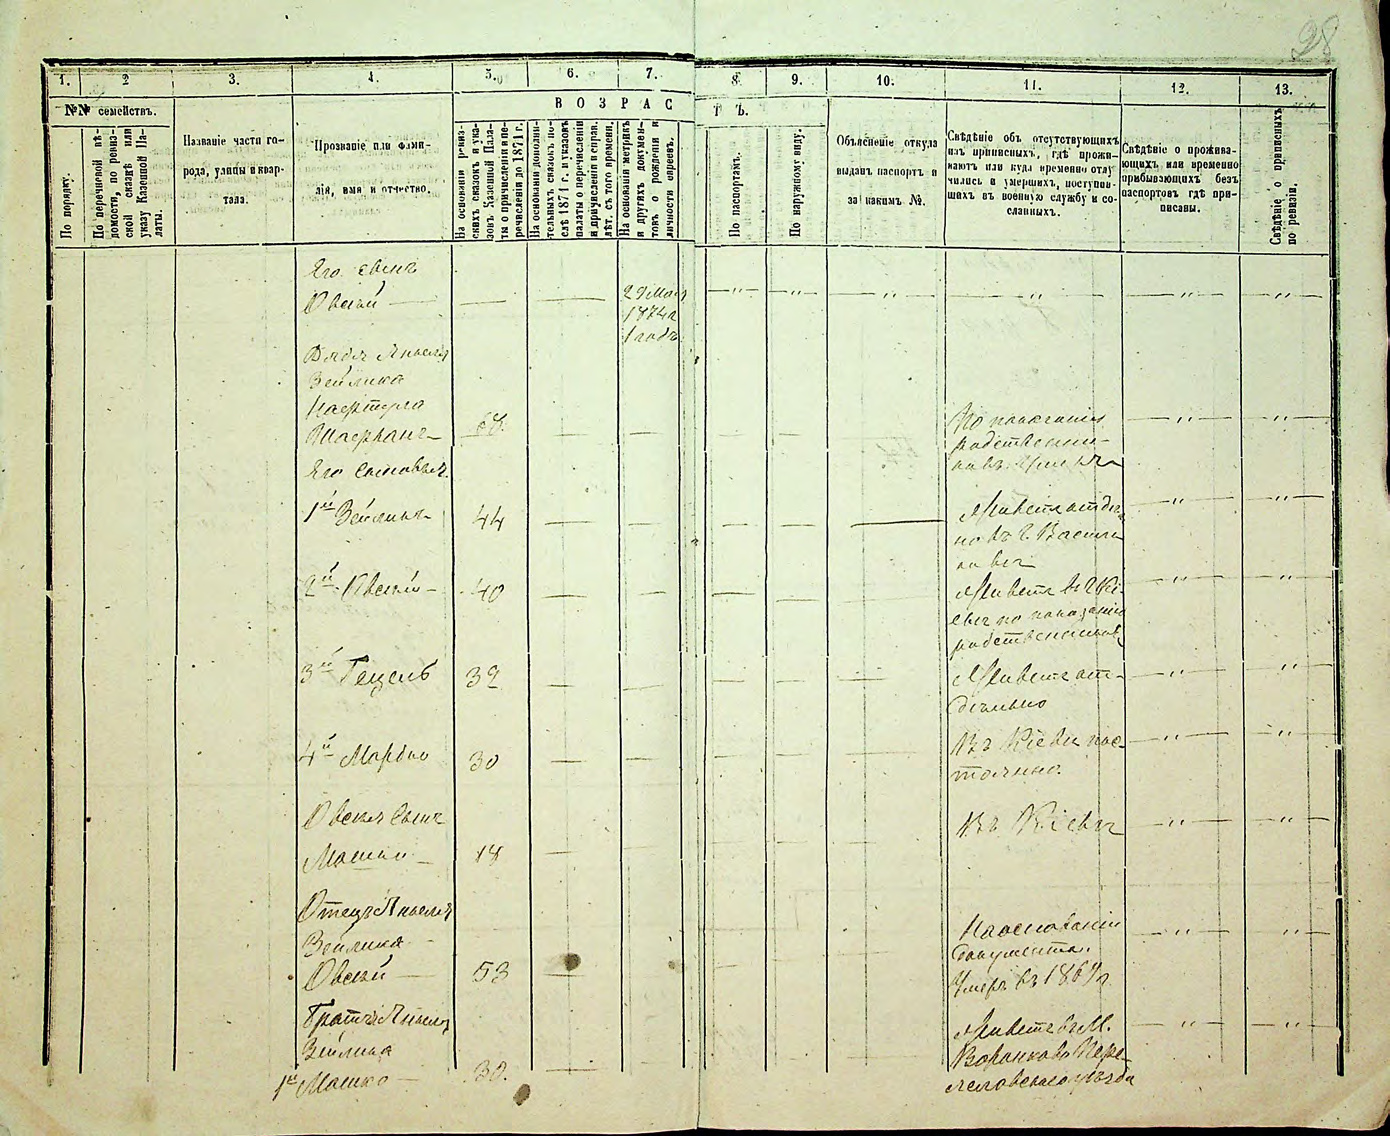 28
1. 2 3. 4. 5. 6. 7. 8. 9. 10. 11. 12. 13.
№№ семействъ.
ВОЗРАСТЪ.
По порядку.
По перечневой вѣ-
домости, по ревиз-
ской сказкѣ или
указу Казенной Па-
латы.
Названіе части го-
рода, улицы и квар-
тала.
Прозваніе или фами-
лія, имя и отчество.
На основаніи ревиз-
скихъ сказокъ и ука-
зовъ Казенной Пала-
ты о причисленіи и пе-
речисленіи до 1871 г.
На основаніи дополни-
тельныхъ сказокъ по-
слѣ 1871 г. и указовъ
палаты о перечисленіи
и причисленіи и справ.
лѣт. съ того времени.
На основаніи метрикъ
и другихъ докумен-
товъ о рожденіи и
личности евреевъ.
По паспортамъ.
По наружному виду.
Объясненіе откуда
выданъ паспортъ и
за какимъ №.
Свѣдѣніе объ отсутствующихъ
изъ приписныхъ, гдѣ прожи-
ваютъ или куда временно отлу
чились и умершихъ, поступив-
шихъ въ военную службу и со-
сланныхъ.
Свѣдѣніе о прожива-
ющихъ или временно
прибывающихъ безъ
паспортовъ гдѣ при-
писаны.
Свѣдѣніе о приписныхъ
по ревизіи.
Его сынъ
Овсѣй — — — 29 Мая — " — — " — — " — — " — — " — — " —
1874 г
1 годъ
Дядя Янкеля
Зейлика
Нафтула
Шафранъ — 68. — — — — По показанію — " — — " —
родственни-
ковъ умеръ
Его сыновья.
1й Зейликъ 44 — — — — — Живетъ отдѣль — " — — " —
но въ г. Василь
ковѣ
2й Овсѣй — 40 — — — — — Живетъ въ г Кі- — " — — " —
евѣ по показанію
родственниковъ
3й Гецель 32 — — — — — Живетъ от- — " — — " —
дѣльно
4й Мордко 30 — — — — — Въ Кіевѣ пос- — " — — " —
тоянно.
Овсѣя сынъ Въ Кіевѣ — " — — " —
Мошко — 18 — — — —
Отецъ Янкеля
Зейлика На основаніи — " — — " —
документа.
Овсѣй — 53 — — — умеръ въ 1869 г.
Братья Янкеля Живетъ въ М. — " — — " —
Зейлика Воронковѣ Пере-
1й Мошко — 30. — яславскаго уѣзда